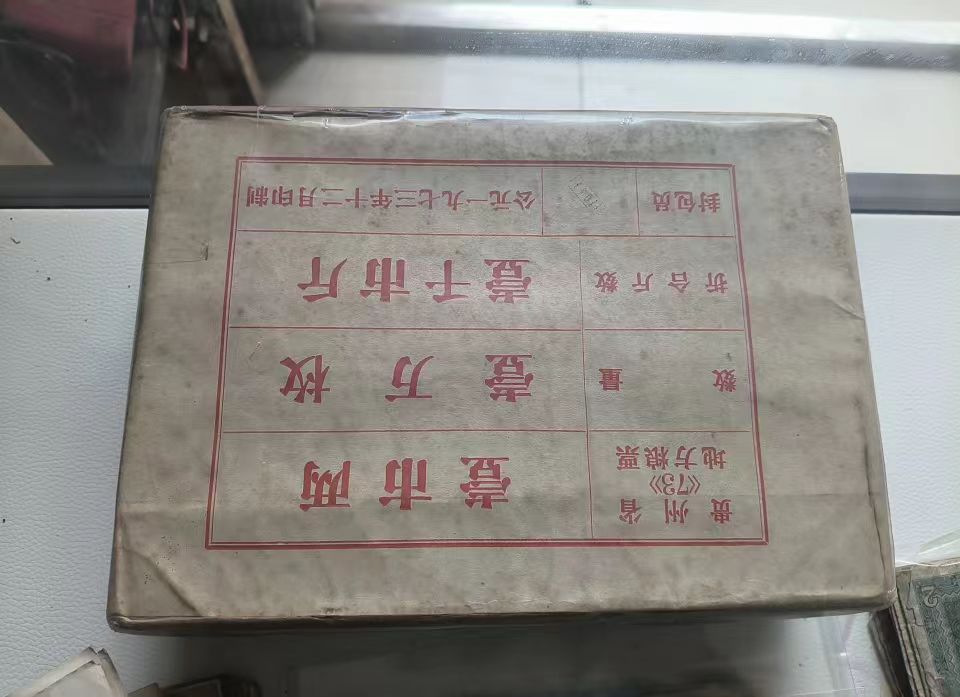 贵州省
《73》
地方粮票
壹市两
数量
壹万枚
折合斤数
壹千市斤
封包员
公元一九七三年十二月印制
2